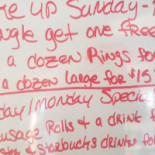 e up Sunday-
gle get one free
a dozen Rings for
a dozen large for $15
day/Monday Special
usage Rolls & a drink f
& Starbucks drinks for